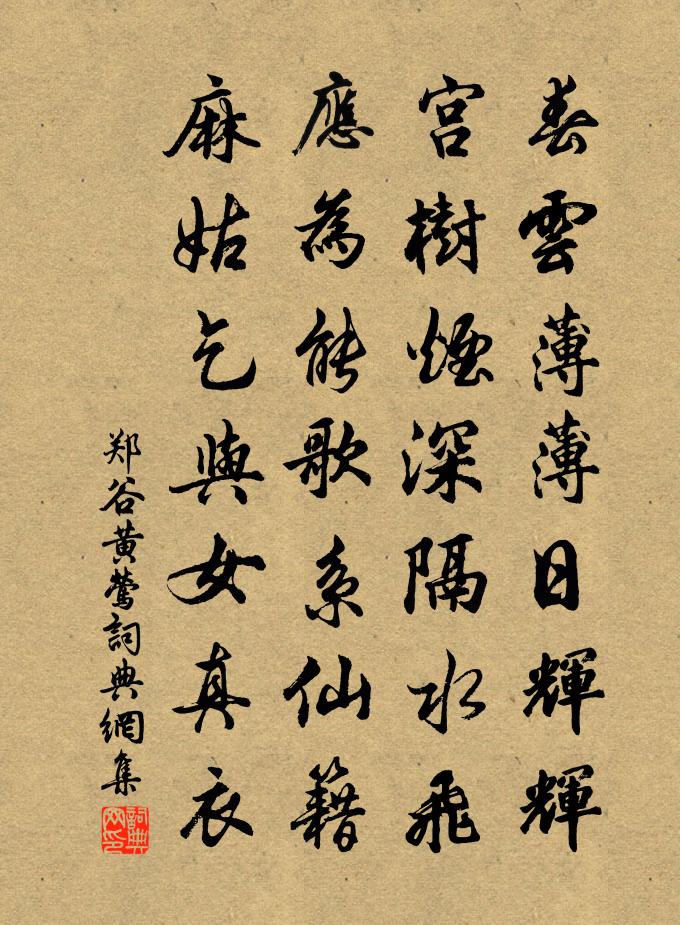 春雲薄薄日輝輝
宮樹煙深隔水飛
應為能歌系仙籍
麻姑乞與女真衣
郑谷黄鶯詞典網集
詞典网印